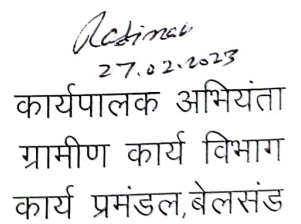 27.02.2023
कार्यपालक अभियंता
ग्रामीण कार्य विभाग
कार्य प्रमंडल,बेलसंड